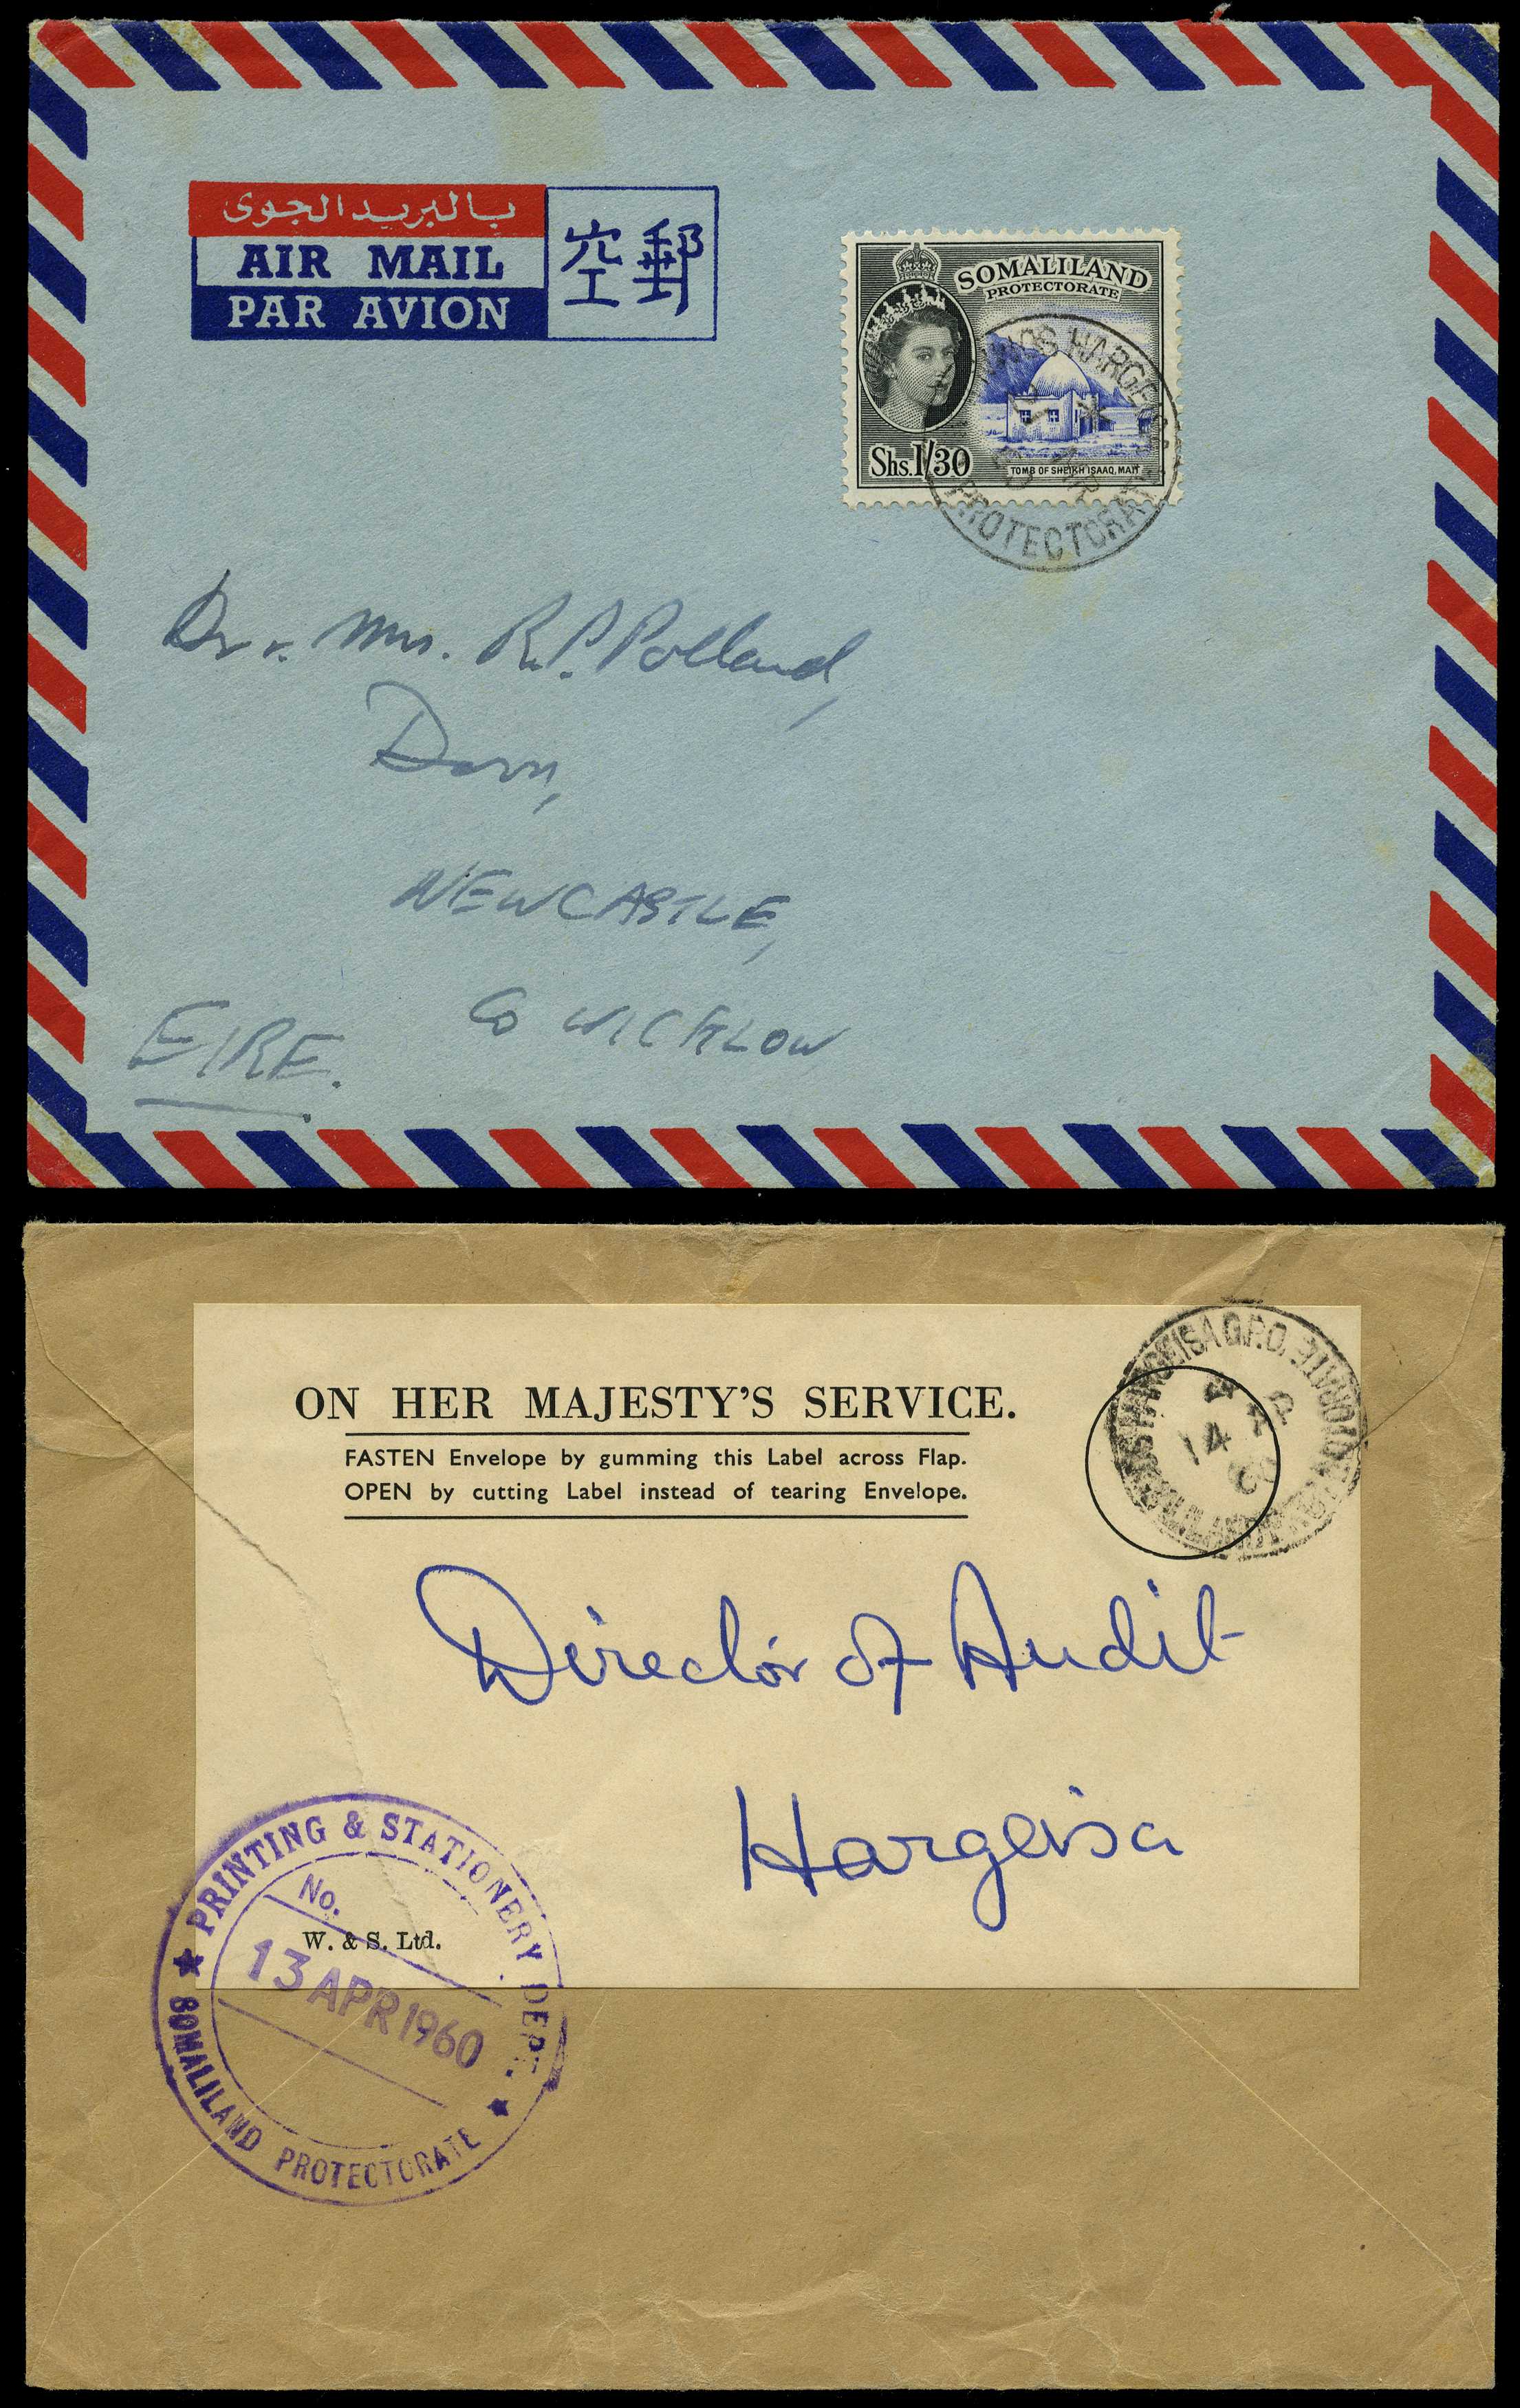 بالبريد الجوى
AIR MAIL
PAR AVION
空郵
SOMALILAND
PROTECTORATE
Shs. 1/30
TOMB OF SHEIKH ISAAQ, MAIT
HARGEISA
PROTECTORATE
Dr & Mrs. R.P. Polland,
NEWCASTLE,
Co WICKLOW
EIRE.
ON HER MAJESTY'S SERVICE.
FASTEN Envelope by gumming this Label across Flap.
OPEN by cutting Label instead of tearing Envelope.
HARGEISA G.P.O.
14
60
Director of Audit
Hargeisa
PRINTING & STATIONERY DEPT.
No.
W. & S. Ltd.
13 APR 1960
SOMALILAND PROTECTORATE